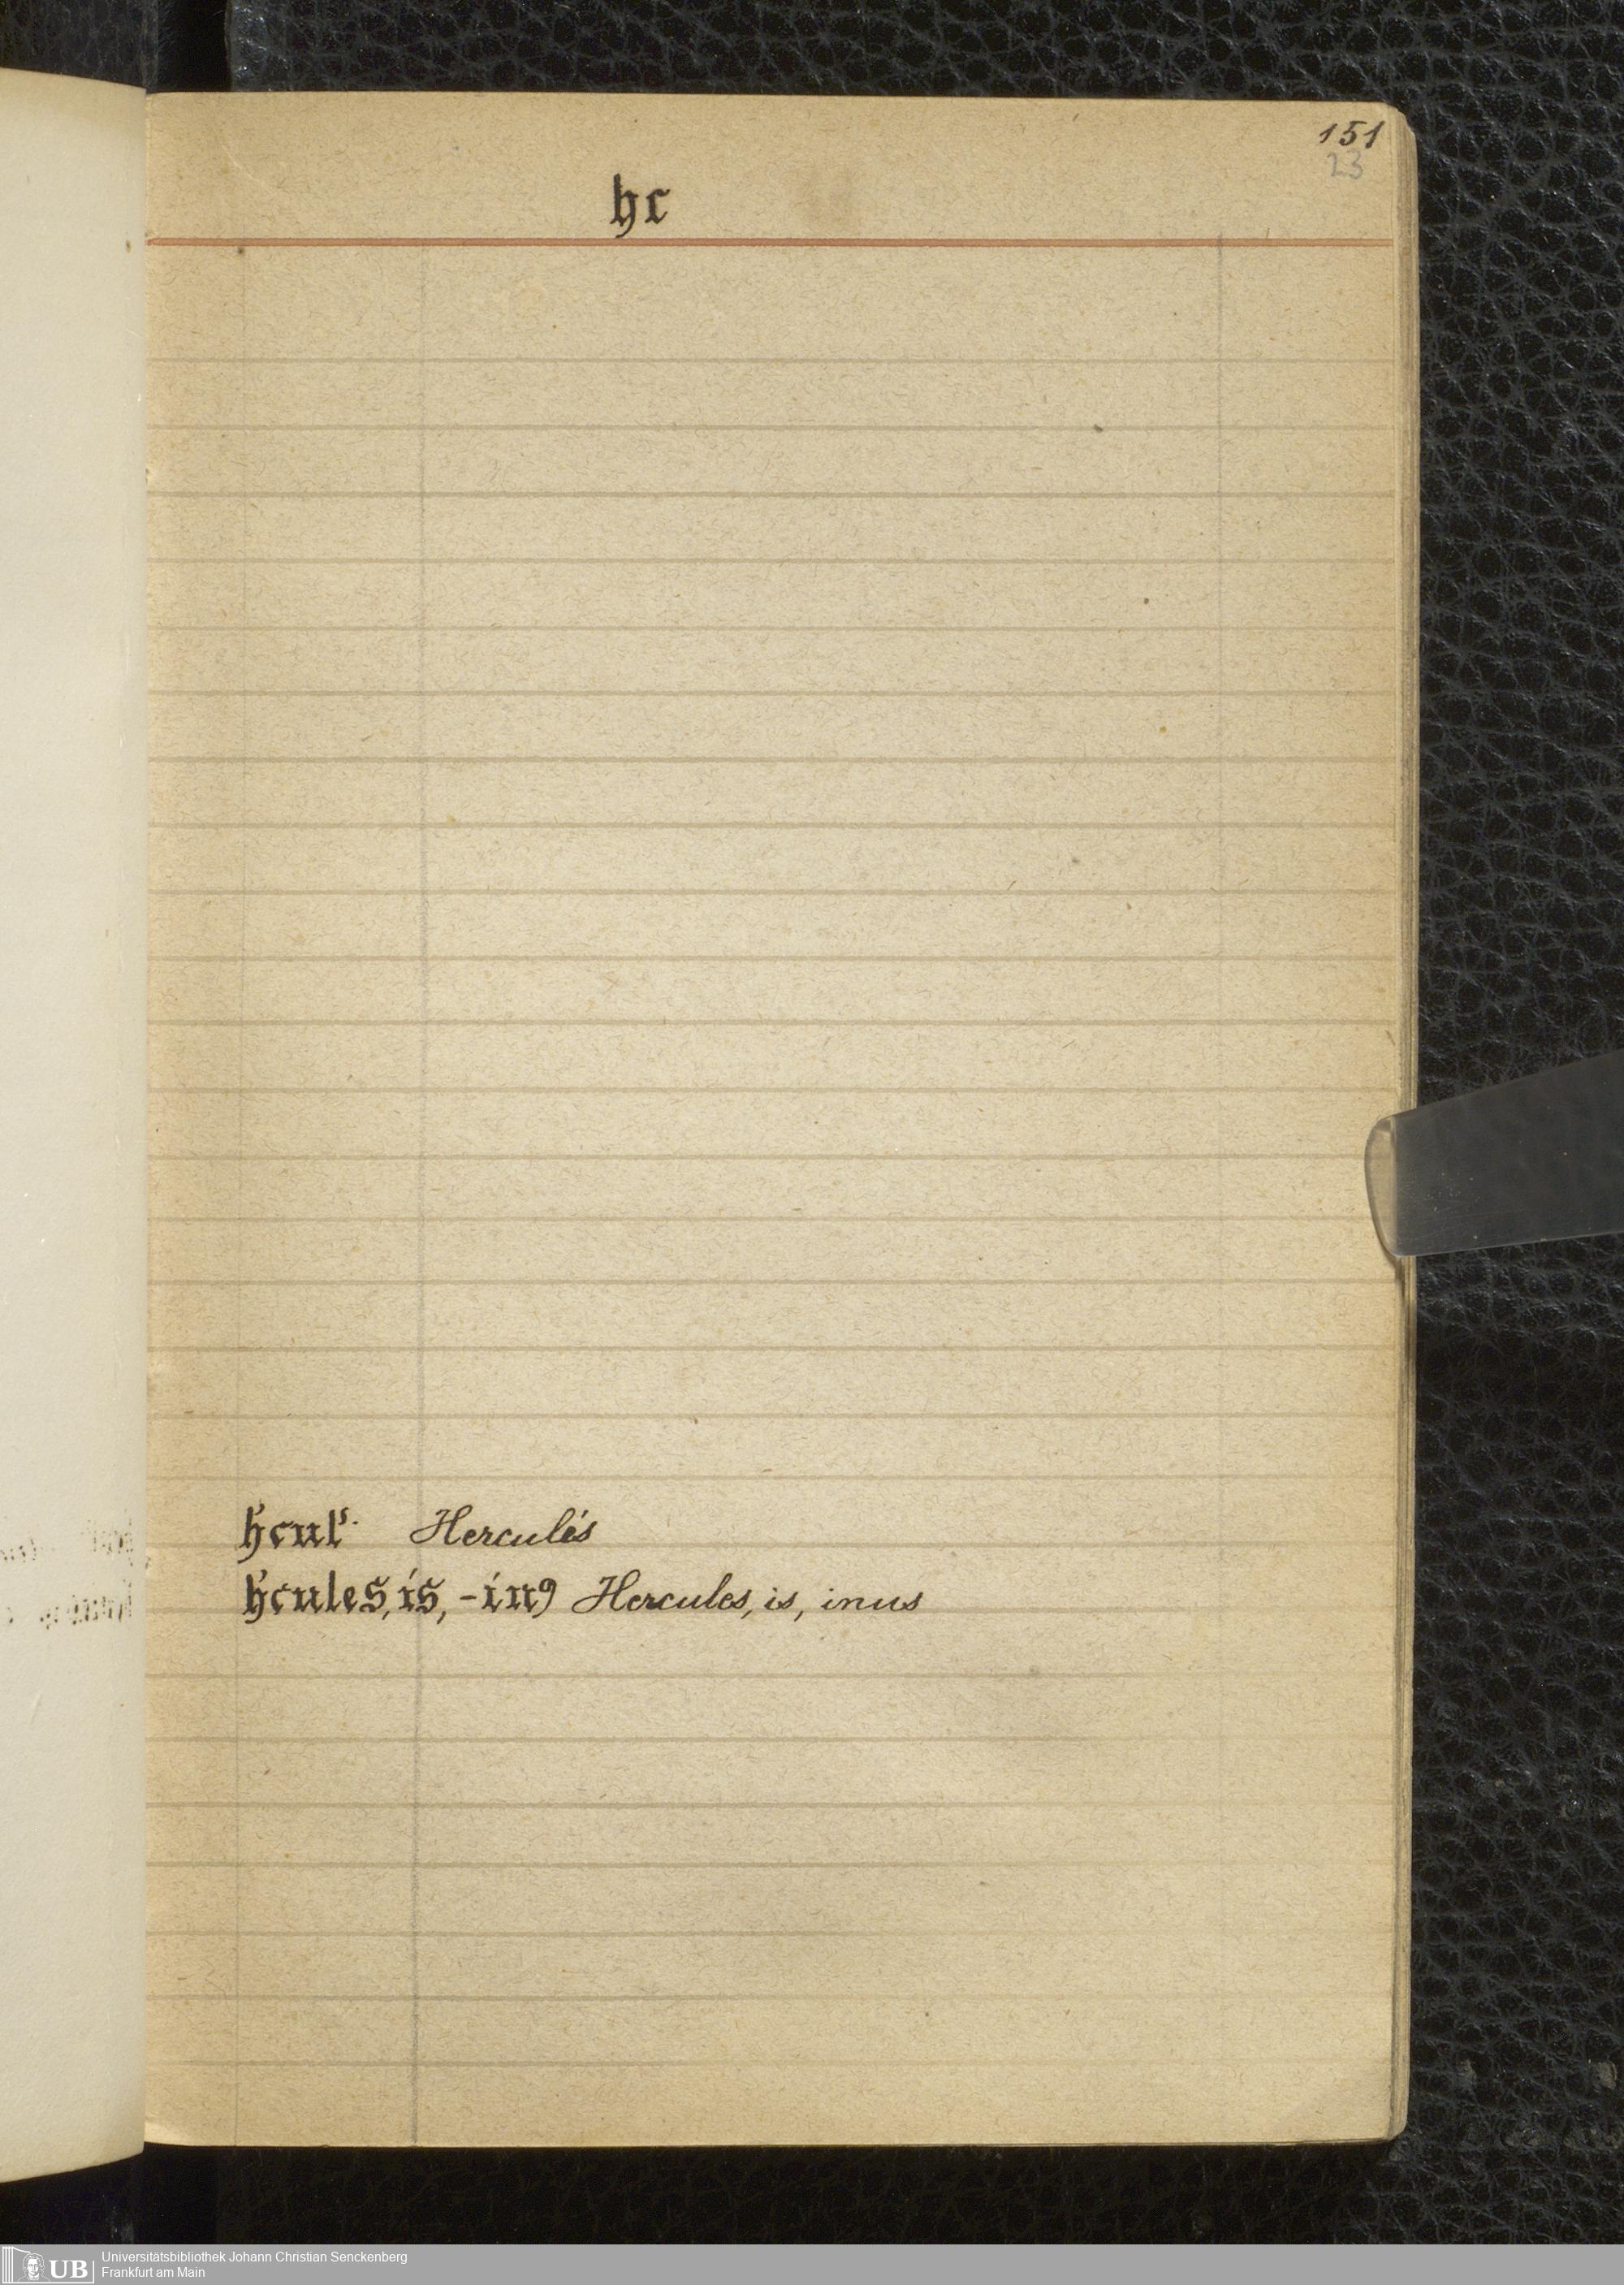 151
23
hc
h̓culˢ· Herculis
h̓cules, is, -inꝯ Hercules, is, inus
UB Universitätsbibliothek Johann Christian Senckenberg
Frankfurt am Main